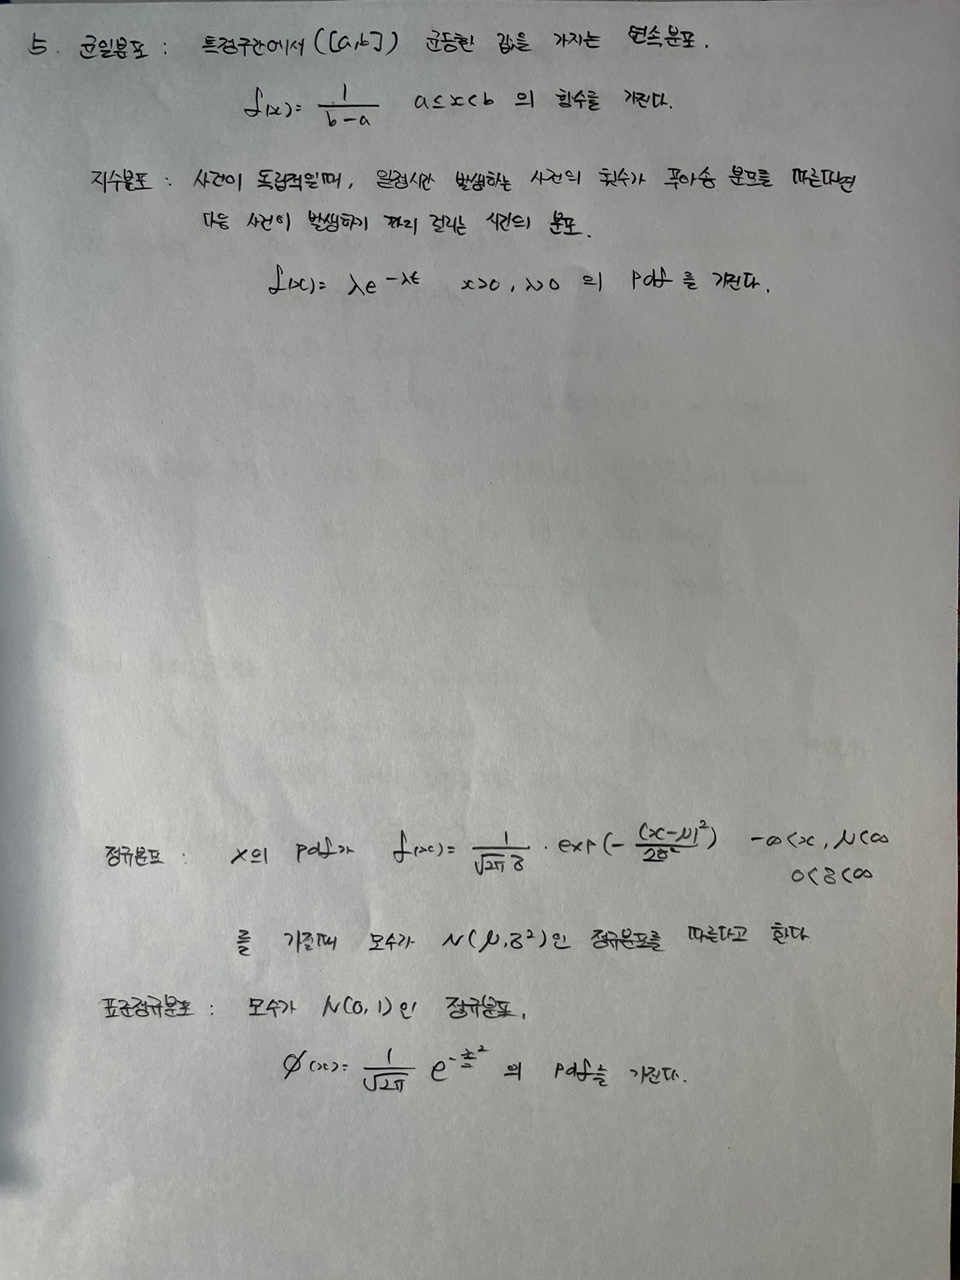 5. 균일분포 : 특정구간에서 ([a,b]) 균등한 값을 가지는 연속분포.
f(x)= 1/(b-a) a≤x<b 의 함수를 가진다.
지수분포 : 사건이 독립적일때, 일정시간 발생하는 사건의 횟수가 푸아송 분포를 따른다면
다음 사건이 발생하기 까지 걸리는 시간의 분포.
f(x)= λe^-λt x>0, λ>0 의 pdf를 가진다.
정규분포 : X의 pdf가 f(x)= 1/(√2π σ) · exp(- (x-μ)²/2σ²) -∞<x, μ<∞
0<σ<∞
를 가질때 모수가 N(μ,σ²)인 정규분포를 따른다고 한다
표준정규분포 : 모수가 N(0,1)인 정규분포.
φ(x)= 1/√2π e 의 pdf를 가진다.